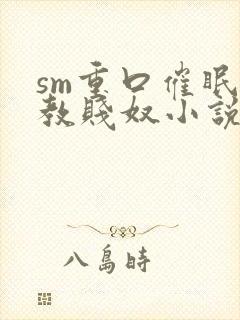 sm重口催眠
教賤奴小說
八島時